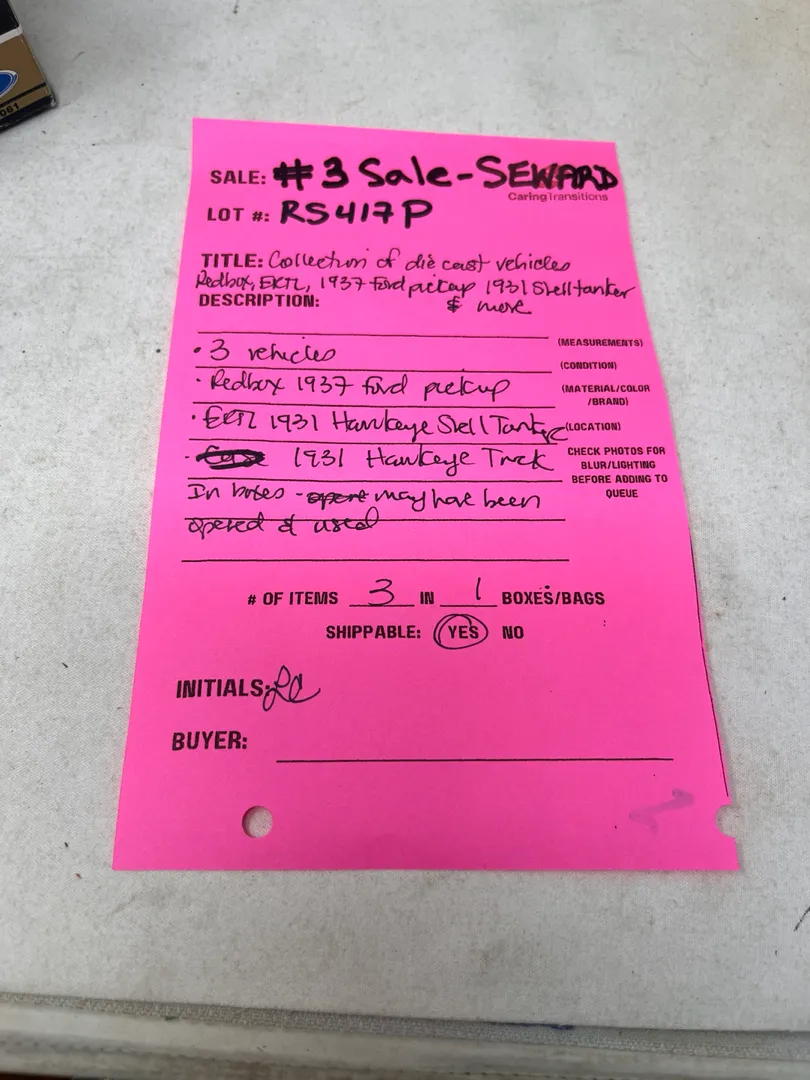 061
SALE: #3 Sale-SEWARD
CaringTransitions
LOT #: RS417P
TITLE: Collection of die cast vehicles
Redbox, ERTL, 1937 Ford pickup 1931 Shell tanker
DESCRIPTION: & more
(MEASUREMENTS)
• 3 vehicles
(CONDITION)
• Redbox 1937 Ford pickup
(MATERIAL/COLOR
/BRAND)
• ERTL 1931 Hawkeye Shell Tanker
(LOCATION)
- 1931 Hawkeye Truck
CHECK PHOTOS FOR
BLUR/LIGHTING
BEFORE ADDING TO
QUEUE
In boxes - may have been
opened & used
# OF ITEMS 3 IN 1 BOXES/BAGS
SHIPPABLE: YES NO
INITIALS:
BUYER: